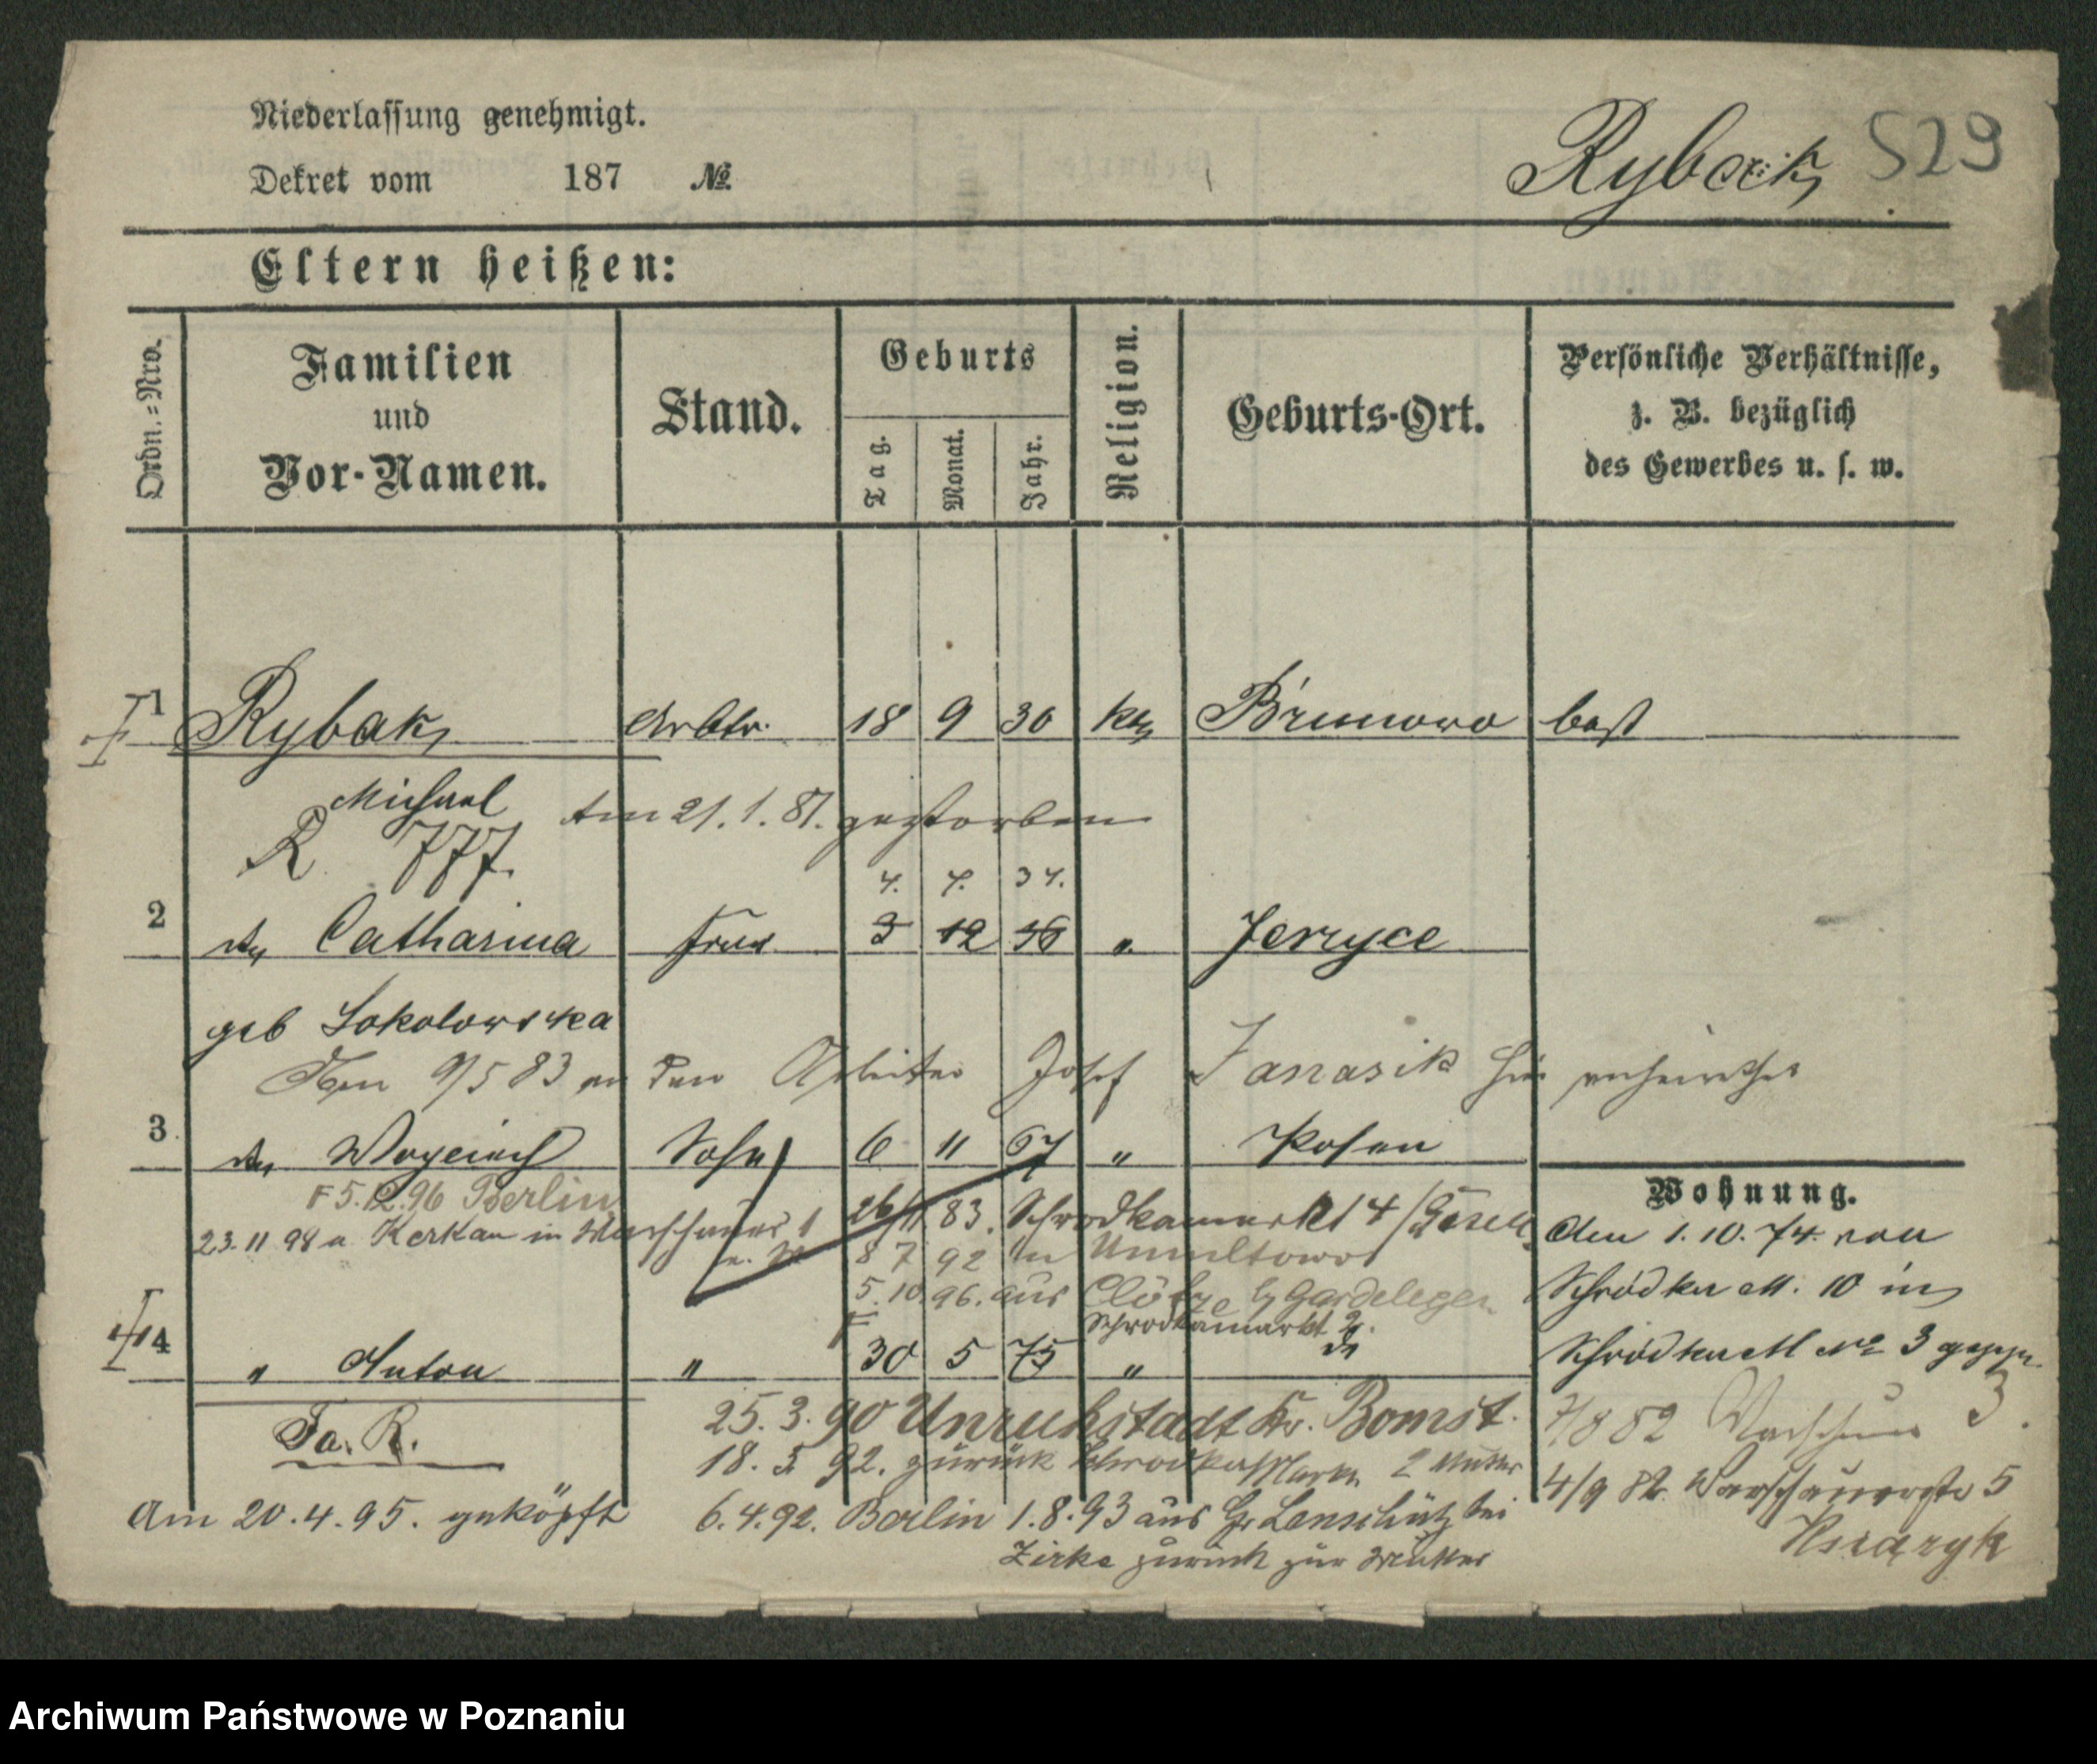 Niederlassung genehmigt.
Rybak 529
Dekret vom 187 №
Eltern heißen:
Ordn.=Nro.
Familien
und
Vor-Namen.
Stand.
Geburts
Tag.
Monat.
Jahr.
Religion.
Geburts-Ort.
Persönliche Verhältnisse,
z. B. bezüglich
des Gewerbes u. s. w.
1 Rybak, Arbtr. 18 9 30 kath
Michael Am 21.1.81. gestorben
R 777.
4. 7. 37.
2 Catharina Frau 3 12 " Jerzyce
geb Sokolowska
9/5 83 an den Arbeiter Josef Janasik hier verheirathet
3 Woyciech Sohn 6 11 67 " Posen
Wohnung.
F 5.12.96 Berlin
26/11 83. Schrodkamarkt 4
23.11 98 a Kerkau in
8 7 92 in Umultowo
5.10.96. aus Clötze Gardelegen
Schrodkamarkt 2.
Den 1.10.74. von
Schrodka M. 10 in
Schrodka M No 3 gezogen
4 " Anton " 30 5 75 "
Fa. R.
25.3.90 Unruhstadt Kr. Bomst.
7/8 82 3.
18.5 92. zurück Schrodka Markt 2 Mutter
4/9 82 Warschauerstr 5
Am 20.4.95. geköpft
6.4.92. Berlin 1.8.93 aus Gr Lenschütz bei
Zirke zurück zur Mutter
Ksiazyk
Archiwum Państwowe w Poznaniu